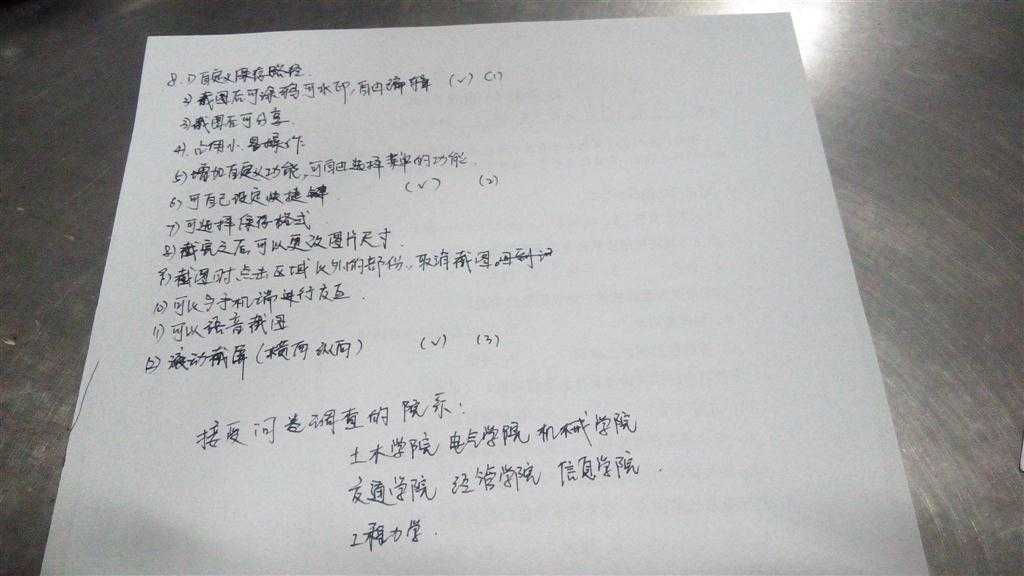 8. 1) 自定义保存路径.
2) 截图后可涂鸦可水印, 自由编辑 (√) (1)
3) 截图后可分享
4) 占用小 易操作.
5) 增加自定义功能, 可自由选择菜单的功能.
6) 可自己设定快捷键 (√) (2)
7) 可选择保存格式
8) 截完之后可以更改图片尺寸.
9) 截图时点击区域以外的部份, 取消截图
10) 可以与手机端进行交互.
11) 可以语音截图
12) 滚动截屏 (横向 纵向) (√) (3)
接受问卷调查的院系:
土木学院 电气学院 机械学院
交通学院 经管学院 信息学院.
工程力学.